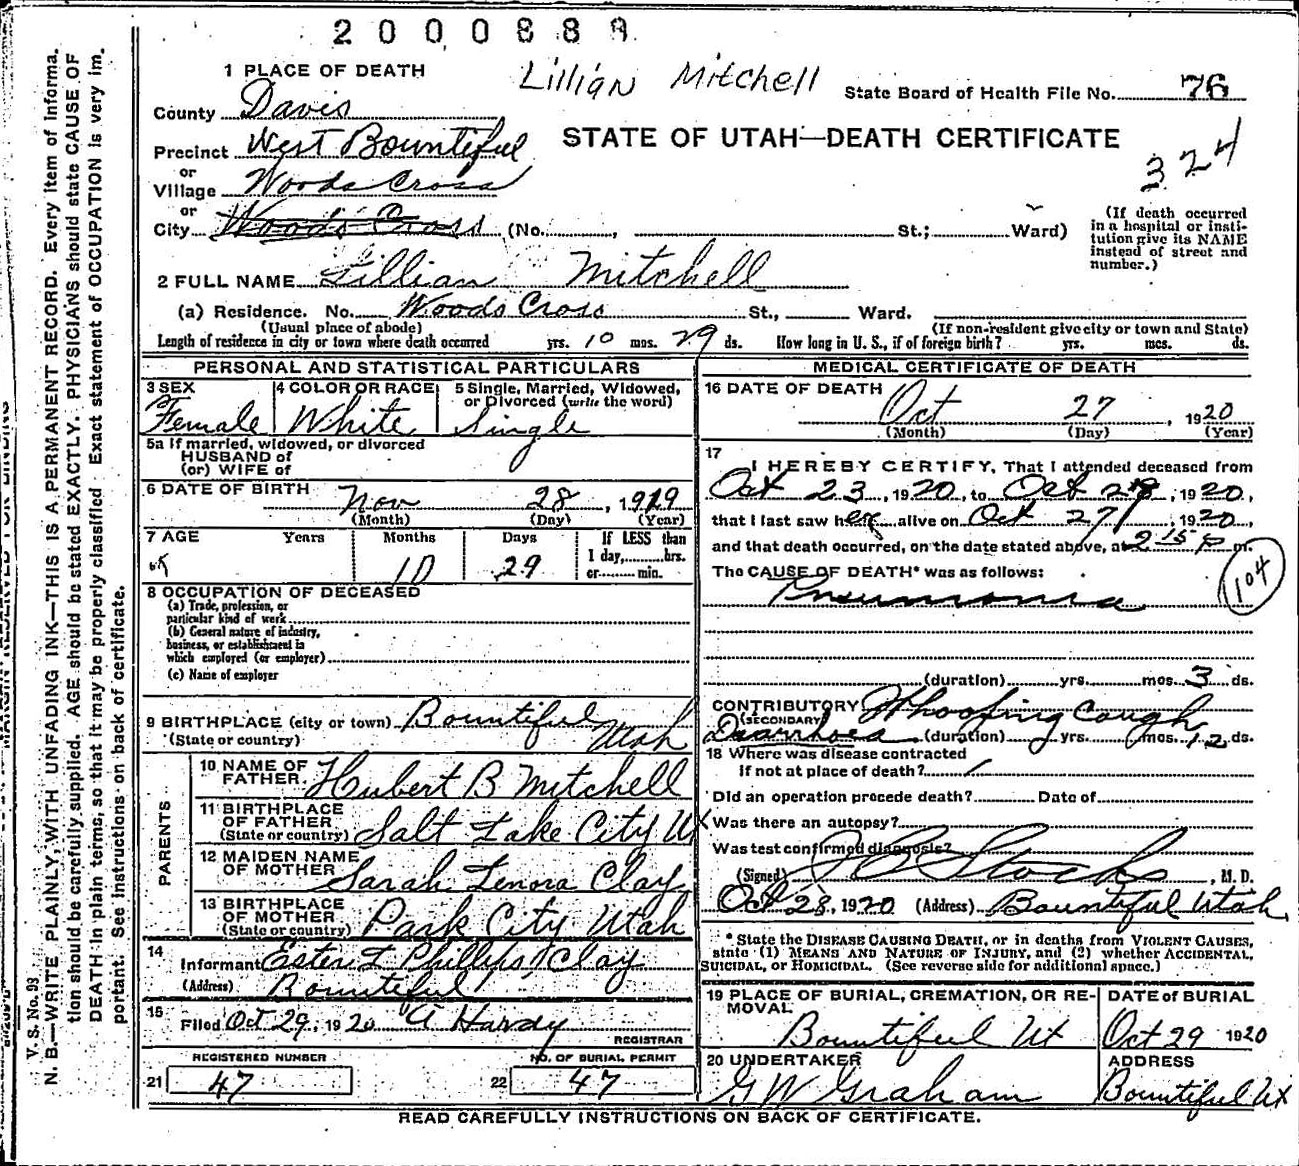 2000888
1 PLACE OF DEATH
Lillian Mitchell
State Board of Health File No. 76
County Davis
STATE OF UTAH—DEATH CERTIFICATE
324
Precinct West Bountiful
or
Village Woods Cross
or
City Woods Cross (No. , St.; Ward)
(If death occurred in a hospital or insti-
tution give its NAME instead of street and number.)
2 FULL NAME Lillian Mitchell
(a) Residence. No. Woods Cross St., Ward.
(Usual place of abode)
(If non-resident give city or town and State)
Length of residence in city or town where death occurred yrs. 10 mos. 29 ds. How long in U. S., if of foreign birth? yrs. mos. ds.
PERSONAL AND STATISTICAL PARTICULARS
3 SEX
Female
4 COLOR OR RACE
White
5 Single, Married, Widowed,
or Divorced (write the word)
Single
5a If married, widowed, or divorced
HUSBAND of
(or) WIFE of
6 DATE OF BIRTH Nov 28, 1919
(Month) (Day) (Year)
7 AGE Years Months Days
10 29
If LESS than
1 day, hrs.
or min.
8 OCCUPATION OF DECEASED
(a) Trade, profession, or
particular kind of work
(b) General nature of industry,
business, or establishment in
which employed (or employer)
(c) Name of employer
9 BIRTHPLACE (city or town) Bountiful
(State or country) Utah
PARENTS
10 NAME OF
FATHER. Hubert B Mitchell
11 BIRTHPLACE
OF FATHER
(State or country) Salt Lake City Ut
12 MAIDEN NAME
OF MOTHER
Sarah Lenora Clay
13 BIRTHPLACE
OF MOTHER
(State or country) Park City Utah
14
Informant Ester L Phillips Clay
(Address) Bountiful
15
Filed Oct 29, 1920 A Hardy
REGISTRAR
REGISTERED NUMBER
NO. OF BURIAL PERMIT
21 47
22 47
MEDICAL CERTIFICATE OF DEATH
16 DATE OF DEATH
Oct 27, 1920
(Month) (Day) (Year)
17
I HEREBY CERTIFY, That I attended deceased from
Oct 23, 1920, to Oct 28, 1920,
that I last saw her alive on Oct 27, 1920,
and that death occurred, on the date stated above, at 2 15 P m.
The CAUSE OF DEATH* was as follows:
104
Pneumonia
(duration) yrs. mos. 3 ds.
CONTRIBUTORY Whooping Cough
(SECONDARY)
Diarrhoea (duration) yrs. mos. 12 ds.
18 Where was disease contracted
if not at place of death?
Did an operation precede death? Date of
Was there an autopsy?
Was test confirmed diagnosis?
(Signed) Stocks, M. D.
Oct 28, 1920 (Address) Bountiful Utah
* State the DISEASE CAUSING DEATH, or in deaths from VIOLENT CAUSES,
state (1) MEANS AND NATURE OF INJURY, and (2) whether ACCIDENTAL,
SUICIDAL, or HOMICIDAL. (See reverse side for additional space.)
19 PLACE OF BURIAL, CREMATION, OR RE-
MOVAL
Bountiful Ut
DATE of BURIAL
Oct 29 1920
20 UNDERTAKER
G W Graham
ADDRESS
Bountiful Ut
READ CAREFULLY INSTRUCTIONS ON BACK OF CERTIFICATE.
V. S. No. 93
N. B.—WRITE PLAINLY, WITH UNFADING INK—THIS IS A PERMANENT RECORD. Every item of informa-
tion should be carefully supplied. AGE should be stated EXACTLY. PHYSICIANS should state CAUSE OF
DEATH in plain terms, so that it may be properly classified. Exact statement of OCCUPATION is very im-
portant. See instructions on back of certificate.